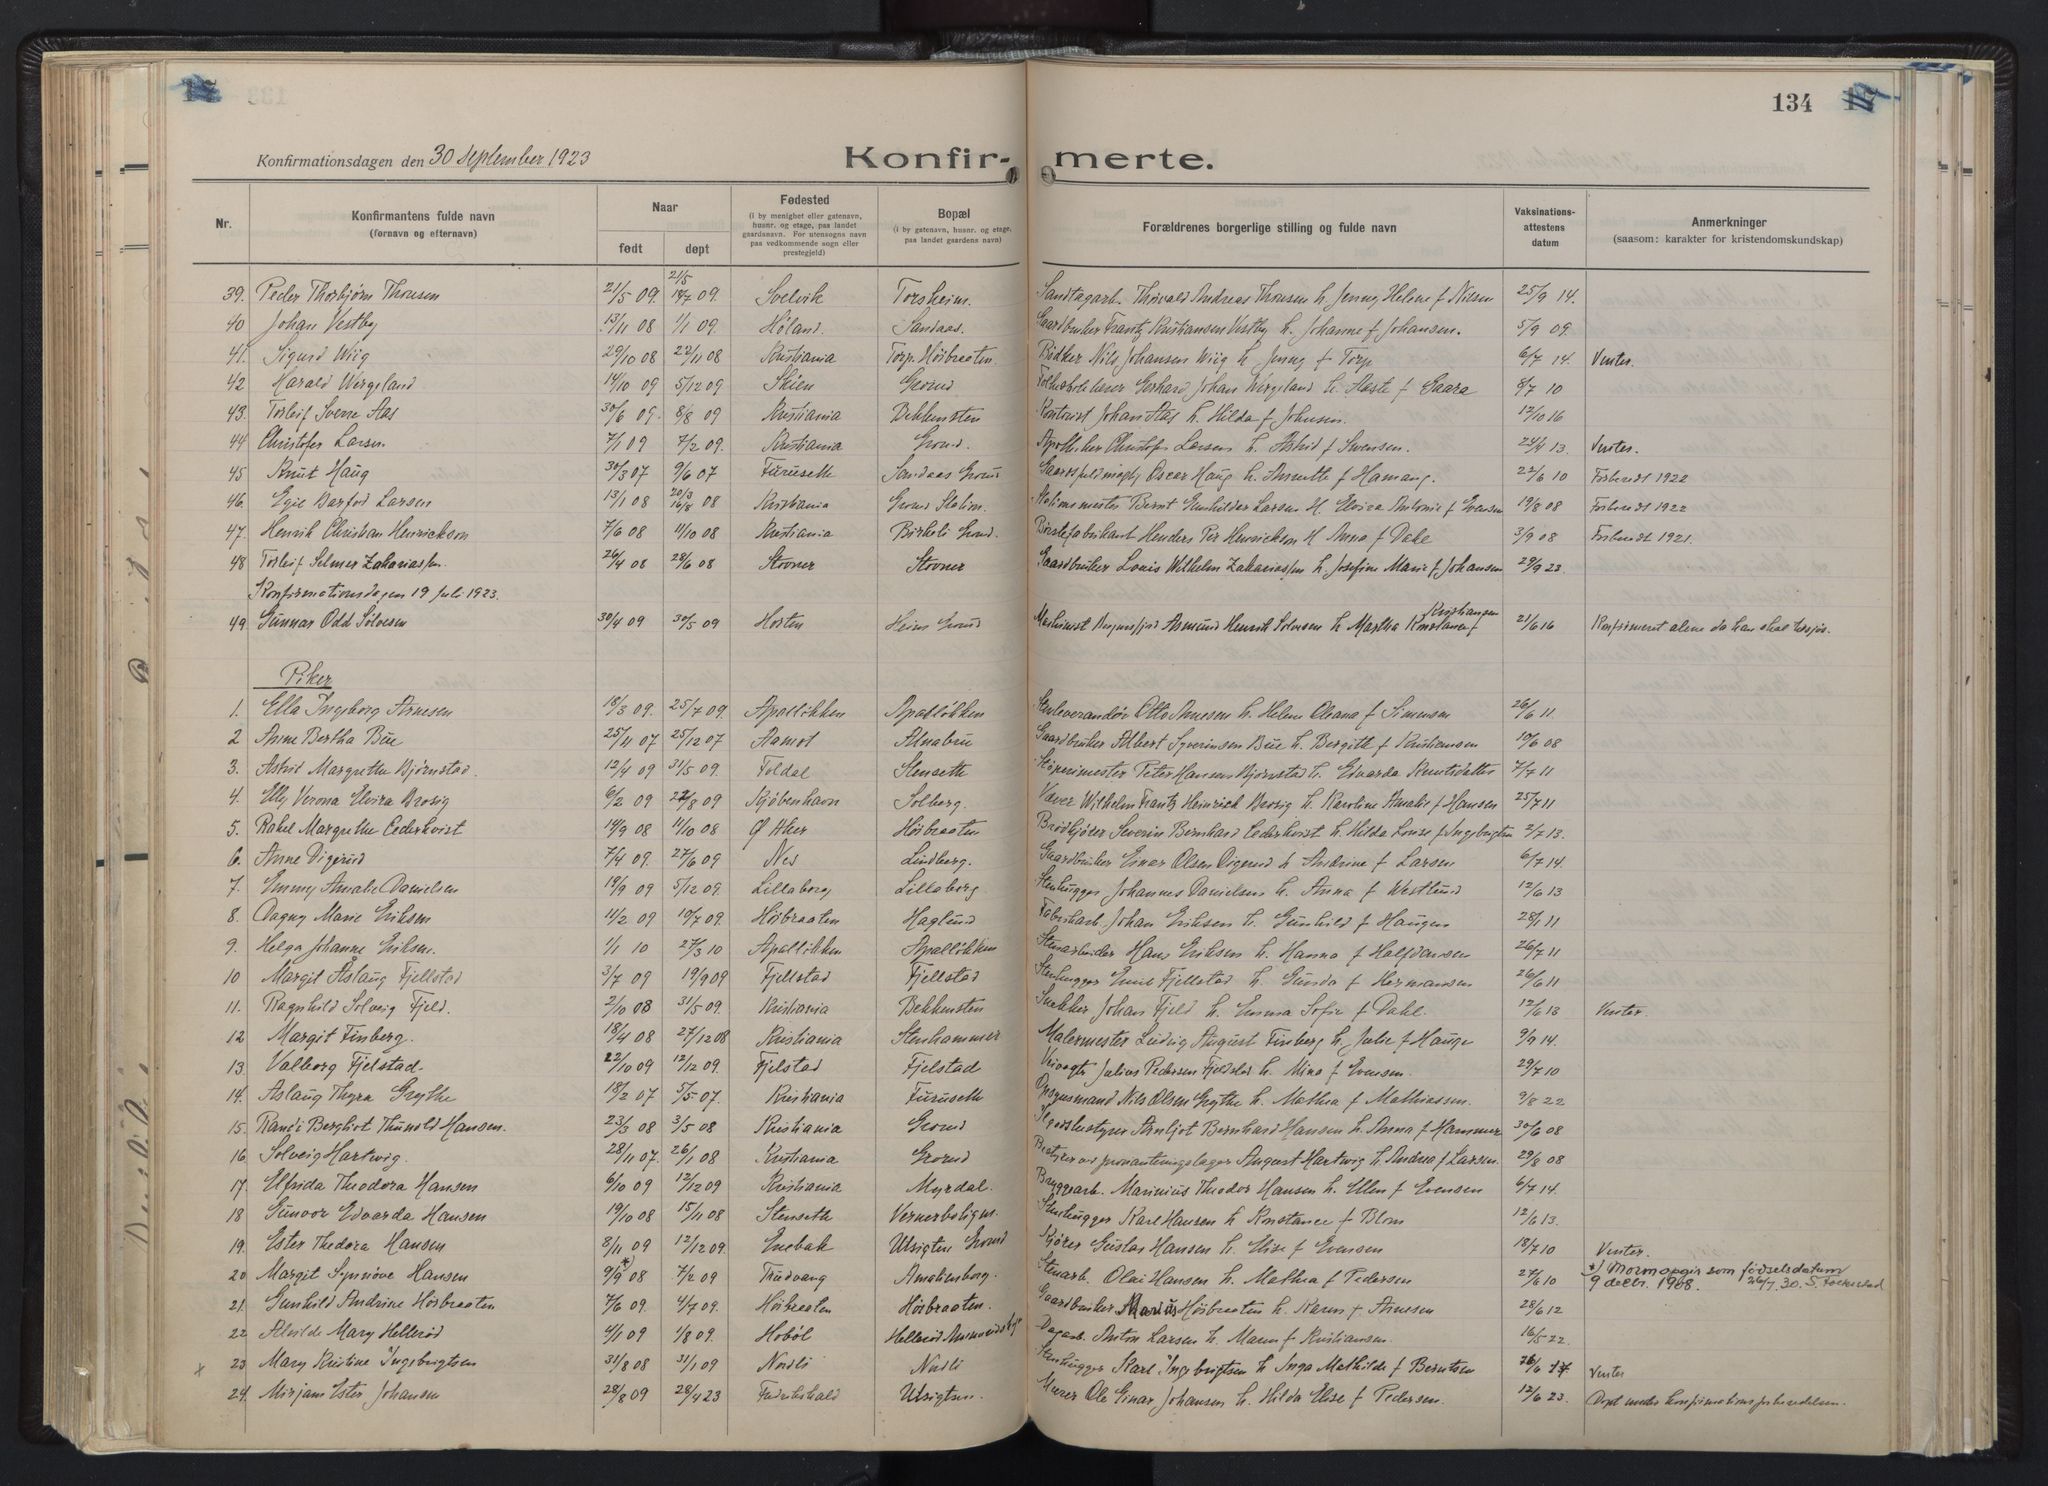 134
Konfirmationsdagen den 30 September 1923
Konfir- merte.
Nr.
Konfirmantens fulde navn
(fornavn og efternavn)
Naar
født
døpt
Fødested
(i by menighet eller gatenavn,
husnr. og etage, paa landet
gaardsnavn. For utensogns navn
paa vedkommende sogn eller
prestegjeld)
Bopæl
(i by gatenavn, husnr. og etage,
paa landet gaardens navn)
Forældrenes borgerlige stilling og fulde navn
Vaksinations-
attestens
datum
Anmerkninger
(saasom: karakter for kristendomskundskap)
39. Peder Thorbjørn Thonsen 21/5 09. 21/5 09. Svelvik Torsheim. Thorvald Andreas Thonsen h. Jenny Helene f Nilsen 25/9 14.
40 Johan Vestby 13/11 08 1/1 09. Høland. Sandaas. Gaardbruker Frantz Kristiansen Vestby h. Johanne f Johansen. 5/9 09.
41. Sigurd Wiig 29/10 08 22/11 08 Kristiania Torp. Høibraaten. Bødker Nils Johansen Wiig h Jenny f Torp 6/7 14. Venter.
42 Harald Wirgeland 14/10 09 5/12 09 Skien Grorud Gerhard Johan Wirgeland h. Aaste f Gaara 8/7 10
43. Torleif Sverre Aas 30/6 09. 8/8 09 Kristiania Bekkensten Kontorist Johan Aas h. Hilda f Johnsen. 12/10 16
44 Christofer Larsen. 7/1 09 7/2 09. Kristiania Grorud. Apotheker Christofer Larsen h. Astrid f Svensen. 24/4 13. Venter.
45 Knut Haug 30/3 07 9/6 07 Furuseth Sandaas Grorud Oscar Haug h. Annette f Hamang. 22/6 10 Forberedt 1922
46. Egil Barfod Larsen 13/1 08 20/3 16/8 08 Kristiania Grorud Station. Stationsmester Bernt Larsen H. Elvira Antonie f Evensen 19/8 08 Forberedt 1922
47. Henrik Christian Henrickson 7/6 08 11/10 08 Kristiania Birkeli Grorud. Børstefabrikant Henders Per Henrickson H Anna f Dahl 3/9 08 Forberedt 1921.
48 Torleif Selmer Zakariassen. 26/4 08 28/6 08 Stovner Stovner Gaardbruker Louis Wilhelm Zakariassen h. Josefine Marie f Johansen 29/9 23.
Konfirmationsdagen 19 juli 1923.
49 Gunnar Odd Solvesen 30/4 09 30/5 09 Horten Heim Grorud Maskinist Asmund Henrik Solvesen h. Martha Konstanse f Kristiansen 21/6 16 Konfirmeret alene da han skal tilsjøs.
Piker
1. Ella Ingeborg Arnesen 18/3 09. 25/7 09. Apalløkken Apalløkken Stenleverandør Otto Arnesen h. Helene Oleana f Simensen 26/6 11.
2 Anne Bertha Bue 25/11 07 25/12 07 Aamot Alnabru Gaardbruker Albert Syversen Bue h. Bergith f Kristiansen 10/6 08
3. Astrid Margrethe Bjørnstad. 12/4 09 31/5 09. Foldal Stenseth Støperimester Peter Hansen Bjørnstad h. Edvarda Knutsdatter 7/7 11
4. Elly Verona Elvira Brosig 6/2 09 22/8 09 Kjøbenhavn Solberg. Væver Wilhelm Frantz Heinrich Brosig h. Karoline Amalie f Hansen 25/7 11
5. Rakel Margrethe Cederkvist 14/9 08 11/10 08 Ø Aker Høibraaten Brødkjører Severin Bernhard Cederkvist h Hilda Louise f Ingebrigtsen 2/7 13.
6. Anne Digerud 7/4 09. 27/6 09 Nes Lindberg. Gaardbruker Einar Olsen Digerud h Andrine f Larsen 6/7 14.
7. Emmy Amalie Danielsen 19/9 09 5/12 09 Lilleborg Lilleborg Stenhugger Johannes Danielsen h. Anna f Westlund 12/6 13
8. Dagny Marie Eriksen 11/2 09 10/7 09. Høibraaten Haglund Fabrikarb. Johan Eriksen h. Gunhild f Haugen 28/1 11
9. Helga Johanne Eriksen. 1/1 10 27/3 10 Apalløkken Apalløkken Stenarbeider Hans Eriksen h. Hanna f Halfdansen 26/7 11
10 Margit Åslaug Fjellstad 3/7 09 19/9 09 Fjellstad Fjellstad Stenhugger Emil Fjellstad h. Gunda f Hermansen 26/6 11
11. Ragnhild Solveig Fjeld. 2/10 08 31/5 09. Kristiania Bekkensten Snekker Johan Fjeld h. Emma Sofie f Dahl. 12/6 18 Venter.
12 Margit Finberg. 18/4 08 27/12 08 Kristiania Stenhammer Malermester Ludvig August Finberg h. Julie f Hauge 9/9 14.
13. Valborg Fjelstad. 22/10 09 12/12 09. Fjelstad Fjelstad Veivogter Julius Pedersen Fjeldstad h. Mina f Evensen. 29/7 10
14. Aslaug Thyra Grythe 18/2 07 5/5 07. Kristiania Furuseth Opsynsmand Nils Olsen Grythe h. Mathea f Mathiassen. 9/8 22
15. Randi Bergliot Thunold Hansen. 23/3 08 3/5 08 Kristiania Grorud Arnljot Bernhard Hansen h. Anna f Hammer 30/6 08
16. Solveig Hartwig. 28/11 07. 26/1 08 Kristiania Grorud Bestyrer ved proviantuingslager August Hartwig h. Andrea f Larsen. 29/8 08
17. Elfrida Theodora Hansen 6/10 09 12/12 09 Kristiania Myrdal. Bryggarb. Marinius Theodor Hansen h. Ellen f Evensen 6/7 14.
18 Gunvor Edvarda Hansen 19/10 08 15/11 08 Stenseth Vernerboligen. Stenhugger Karl Hansen h Konstance f Blom 12/6 13.
19. Ester Thedora Hansen 8/11 09 12/12 09. Enebak Utsigten Grorud Kjører Gustav Hansen h. Elise f Evensen 18/7 10 Venter.
20 Margit Synnøve Hansen 9/9 08 *) 7/2 09 Trudvang Amalienborg. Stenarb. Olai Hansen h. Mathea f Pedersen 27/6 10 *) Mor opgir som fødselsdatum 9 decbr. 1908. 26/7 30.
21. Gunhild Andrine Høibraaten 7/6 09. 4/7 09. Høibraaten Høibraaten. Gaardbruker Marius Høibraaten h. Karen f Arnesen 28/6 12
22 Alvilde Mary Hellerød 4/1 09 1/8 09. Hobøl Hellerød Dagarb. Anton Larsen h. Maren f Kristiansen. 16/5 22.
x 23. Mary Kristine Ingebrigtsen 31/8 08 31/1 09 Nordli Nordli Stenhugger Karl Ingebrigtsen h Inga Mathilde f Berntsen 26/6 Venter
24. Mirjam Ester Johansen 28/8 09 28/4 23 Fredrikshald Utsigten. Murer Ole Einar Johansen h. Hilda Elise f Pedersen. 12/6 23. Døpt under konfirmationsforberedelsen.